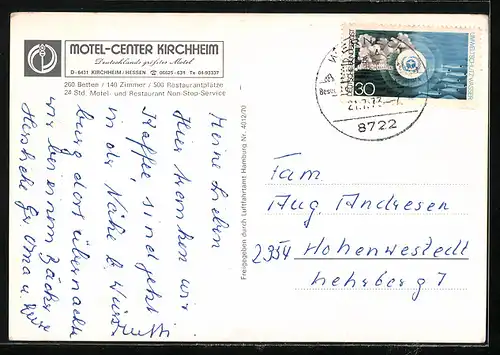 MOTEL-CENTER KIRCHHEIM
Deutschlands größtes Motel
D - 6431 KIRCHHEIM / HESSEN ☎ 06625-631 Tx 04-93337
260 Betten / 140 Zimmer / 500 Restaurantplätze
24 Std. Motel- und Restaurant Non-Stop-Service
Meine Lieben
Hier tranken wir
Kaffee, sind jetzt
in der Nähe b. Würz
burg dort übernachte
wir bei einem Bäcker
Herzliche Gr. Oma u.
Freigegeben durch Luftfahrtamt Hamburg Nr. 4012/70
30
8722
Fam
Aug Andresen
2354 Hohenwestedt
Lehrberg 7